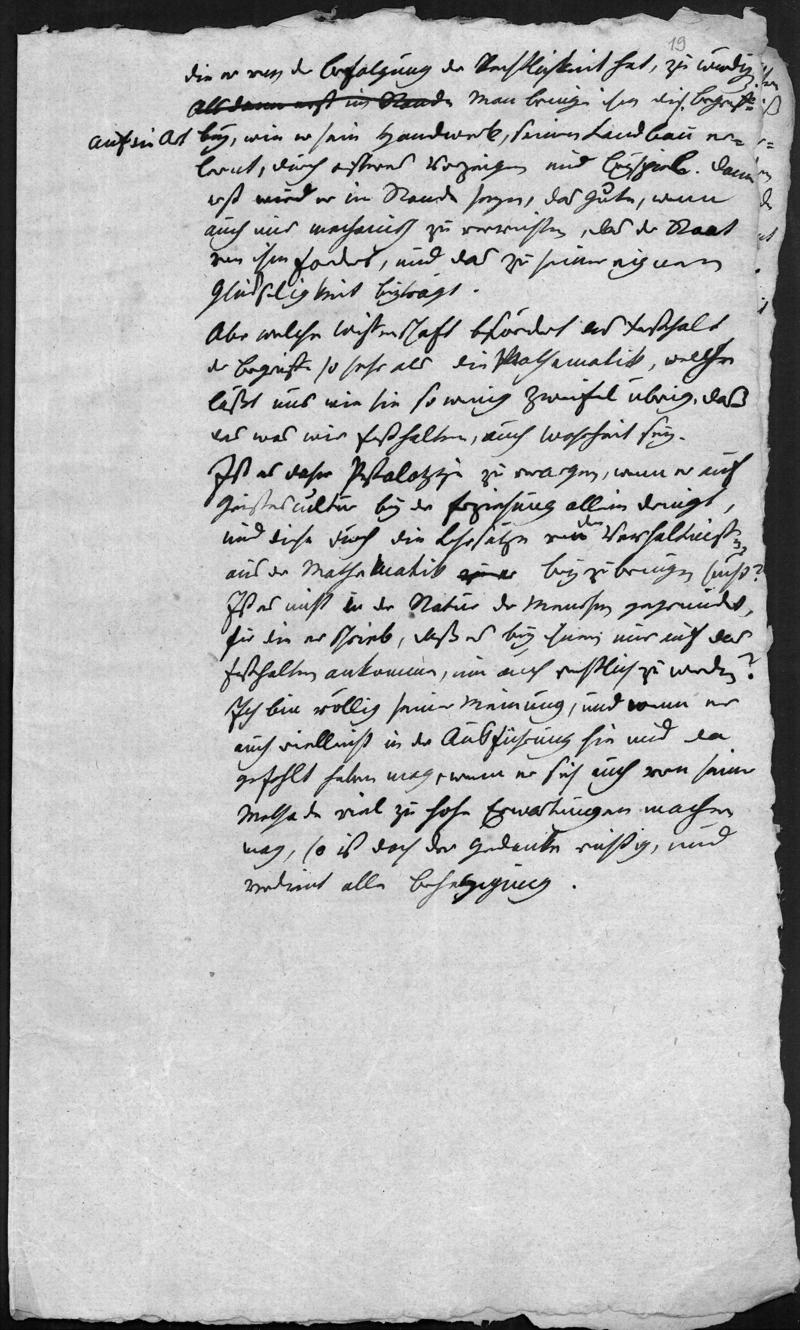 19
die er von der Befolgung der Rechtlichkeit hat, zu würdig
Alsdann erst im Stande Man bringe ihm diese Begriffe
auf die Art bey, wie er sein Handwerk, seinen Landbau er=
lernt, durch öfteres Vorzeigen und Beyspiele. Dann
erst wird er im Stande seyn, das Gute, wenn
auch nur mechanisch zu verrichten, das der Staat
von ihm fodert, und das zu seiner eignen
Glückseligkeit beyträgt.
Aber welche Wissenschaft befördert das Festhalten
der Begriffe so sehr als die Mathematik, welche
läßt uns wie sie so wenig Zweifel übrig, daß
das was wir festhalten, auch Wahrheit sey.
Ist es daher Pestalozzi zu verargen, wenn er auf
Geistescultur bey der Erziehung allein dringt,
und diese durch die Lehrsätze von den Verhältnissen
aus der Mathematik beyzubringen sucht?
Ist es nicht in der Natur der Menschen gegründet,
für die er schrieb, daß es bey ihnen nur auf das
Festhalten ankomme, um auch rechtlich zu werden?
Ich bin völlig seiner Meinung, und wenn er
auch vielleicht in der Ausführung hie und da
gefehlt haben mag, wenn er sich auch von seiner
Methode viel zu hohe Erwartungen machen
mag, so ist doch der Gedanke richtig, und
verdient alle Beherzigung.